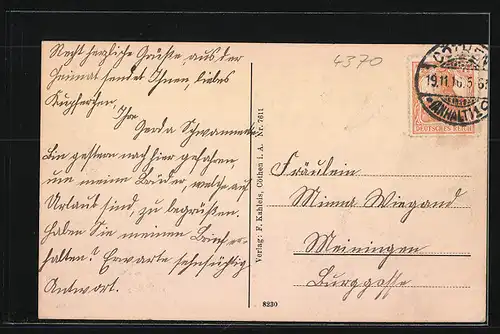 Recht herzliche Grüße, aus der
Heimat sendet Ihnen, liebes
Ihre
Gerda
Bin gestern nach hier gefahren,
um meine Brüder, welche auf
Urlaub sind, zu begrüßen.
Haben Sie meinen Brief er-
halten? Erwarte sehnsüchtig
Antwort.
Verlag: F. Kahleis, Cöthen i. A. Nr. 7611
4370
CÖTHEN
19.11.16.5-6
*(ANHALT)1c
DEUTSCHES REICH
Fräulein
Minna Wiegand
Meiningen
Burggasse
8230